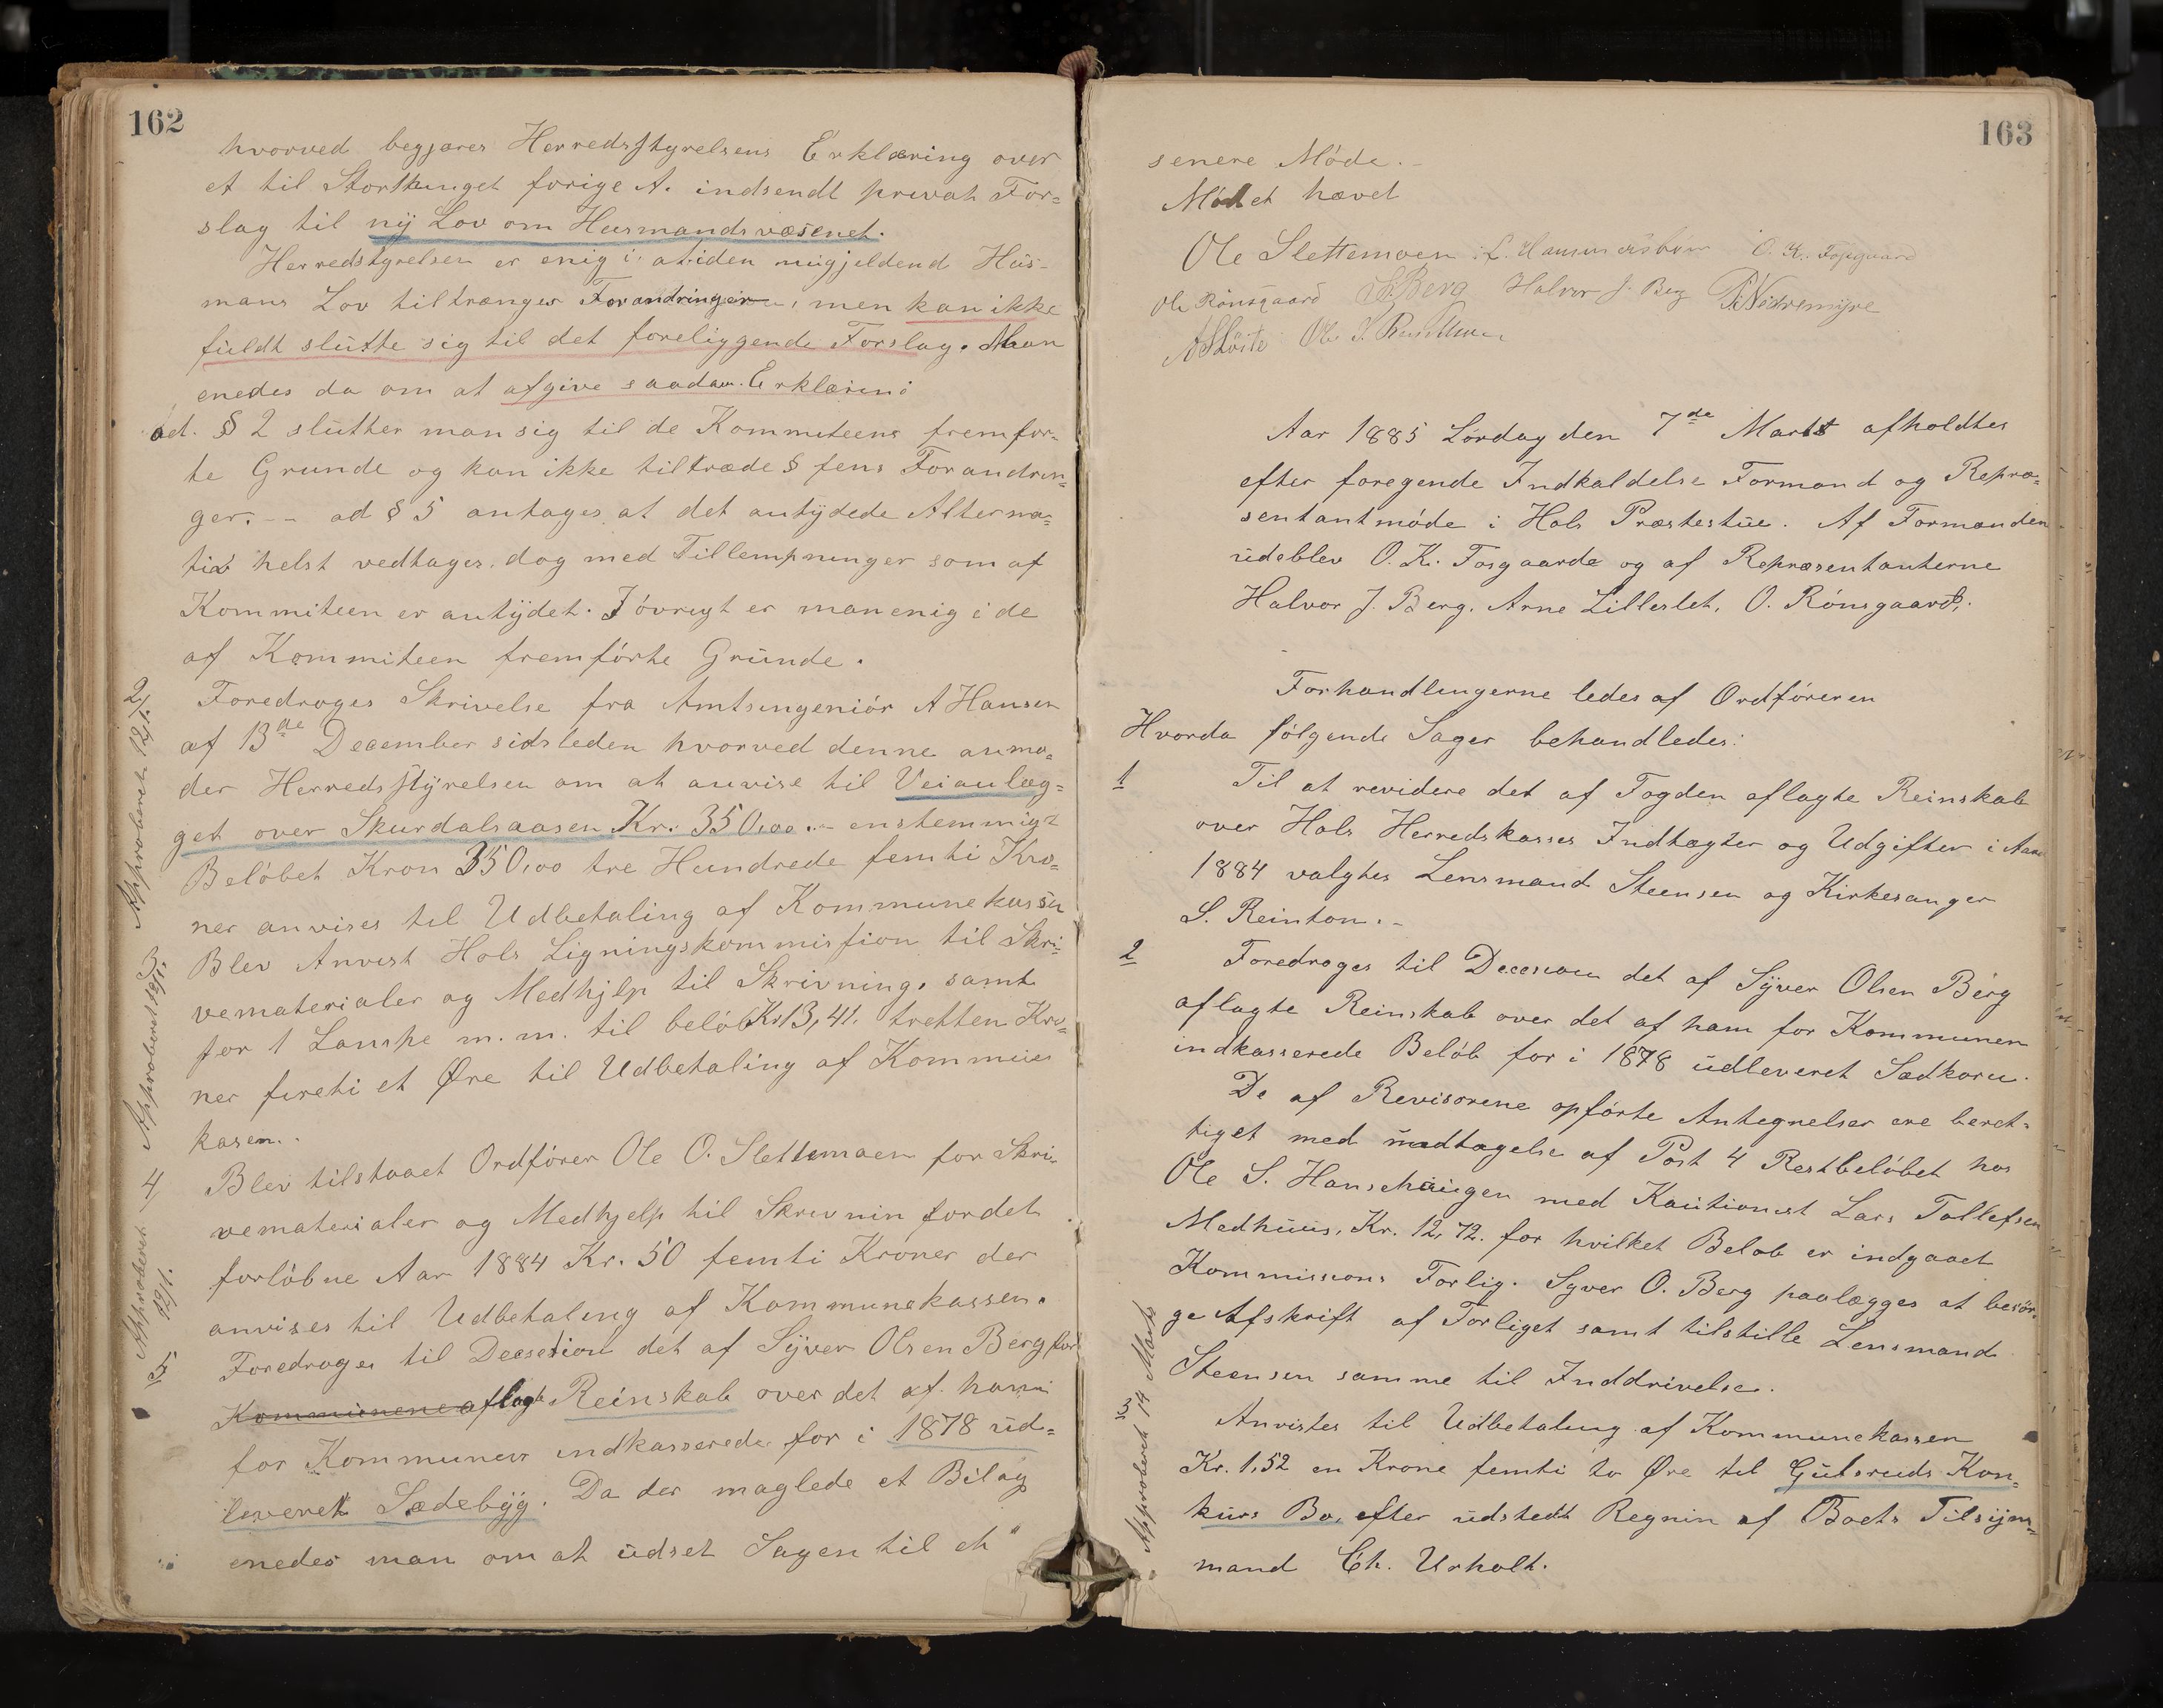 162
hvorved begjæres Herredsstyrelsens Erklæring over
et til Storthinget forige A. indsendt privat For=
slag til ny Lov om Husmandsvæsenet.
Herredstyrelsen er enig i at den nugjeldend Hus-
mans Lov tiltrænger Forandringer, men kan ikke
fuldt slutte sig til det foreliggende Forslag. Man
enedes da om at afgive saadan Erklæring:
ad. § 2 slutter man sig til de Kommiteens fremfør-
te Grunde og kan ikke tiltræde § fens Forandrin=
ger. -- ad § 5 antages at det antydede Alterna=
tiv helst vedtages, dog med Tillempninger som af
Kommiteen er antydet. I øvregt er man enig i de
af Kommiteen fremførte Grunde.
2/ Foredroges Skrivelse fra Amtsingeniør A Hansen
af 13de December sidsleden hvorved denne anmo=
der Herredsstyrelsen om at anvise til Veianlæg=
get over Skurdalsaasen Kr. 350,00.- enstemmigt
Beløbet Kron 350,00 tre Hundrede femti Kro=
ner anvises til Udbetaling af Kommunekassen
Approberet 12/1.
3 Blev Anvist Hols Ligningskommission til Skri=
vematerialer og Medhjelp til Skrivning, samt
for 1 Lampe m.m. til beløb Kr 13,41. tretten Kro=
ner fireti et Øre til Udbetaling af Kommune
kasen.
Approberet 12/1.
4/ Blev tilstaaet Ordfører Ole O. Slettemoen for Skri-
vematerialer og Medhjelp til Skrivnin for det
forløbne Aar 1884 Kr. 50 femti Kroner der
anvises til Udbetaling af Kommunekassen.
Approberet 12/1.
5 Foredroges til Decsetion det af Syver Olsen Berg for
Kommunene aflagte Reinskab over det af ham
for Kommunen indkasserede for i 1878 ud=
leveret Sædebyg. Da der maglede et Bilag
enedes man om at udset Sagen til et
163
senere Møde.-
Mødet hævet
Ole Slettemoen L. Hammersbøen O. K. Fosgaard
Ole Rønsgaard S Berg Halvor J. Berg P. Nestremyre
A S Løite Ole S.
Aar 1885 Lørdag den 7de Marts afholdtes
efter foregende Indkaldelse Formand og Repræ=
sentantmøde i Hols Præstestue. Af Formænden
udeblev O. K. Fosgaarde og af Repræsentanterne
Halvor J. Berg. Arne Lilleslet, O. Rønsgaard.
Forhandlingerne ledes af Ordføreren
Hvorda følgende Sager behandledes:
1 Til at revidere det af Fogden aflagte Reinskab
over Hols Herredskasses Indtægter og Udgifter i Aare
1884 valgtes Lensmand Steensen og Kirkesanger
S. Reinton.-
2 Foredroges til Decesion det af Syver Olsen Berg
aflagte Reinskab over det af ham for Kommunen
indkasserede Beløb for i 1878 udleveret Sædkorn.
De af Revisorene opførte Antegnelser ere beret-
tiget med undtagelse af Post 4 Restbeløbet hos
Ole S. Hansehaugen med Kautionist Lars Tollefsen
Medhuus, Kr. 12,72. for hvilket Beløb er indgaaet
Kommissions Forlig. Syver O. Berg paalægges at besør-
ge Afskrift af Forliget samt tilstille Lensmand
Steensen samme til Inddrivelse.
3 Anvistes til Udbetaling af Kommunekassen
Kr. 1,52 en Krone femti to Øre til Gulsruds Kon=
kurs Bo, efter udstedt Regnin af Boets Tilsyns=
mand Ch. Urholt.
Approberet 14 Marts